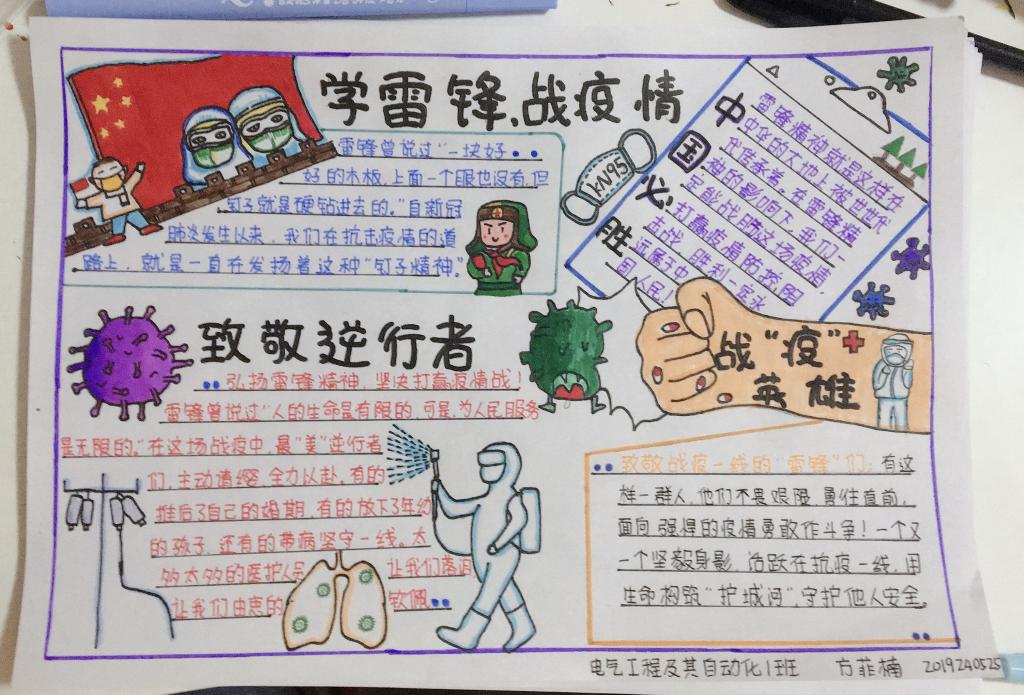 学雷锋,战疫情
雷锋曾说过“一块好
好的木板,上面一个眼也没有,但
钉子就是硬钻进去的。”自新冠
肺炎发生以来,我们在抗击疫情的道
路上,就是一直在发扬着这种“钉子精神”。
KN95
中国必胜
雷锋精神就是这样在
中华的大地上被世世代
代传承着。在雷锋精
神的影响下,我们一
定能战胜这场疫情,
打赢疫情防控阻
击战,胜利一定永
远属于中
国人民!
致敬逆行者
弘扬雷锋精神,坚决打赢疫情战!
雷锋曾说过“人的生命是有限的,可是,为人民服务
是无限的。”在这场战疫中,最“美”逆行者
们,主动请缨,全力以赴,有的
推后了自己的婚期,有的放下3年幼
的孩子,还有的带病坚守一线。太
多太多的医护人员 让我们落泪,
让我们由衷的 钦佩
战“疫”
英雄
致敬战疫一线的“雷锋”们:有这
样一群人,他们不畏艰险,勇往直前,
面向强悍的疫情勇敢作斗争!一个又
一个坚毅身影,活跃在抗疫一线,用
生命构筑“护城河”,守护他人安全。
电气工程及其自动化1班 方菲楠 2019240525